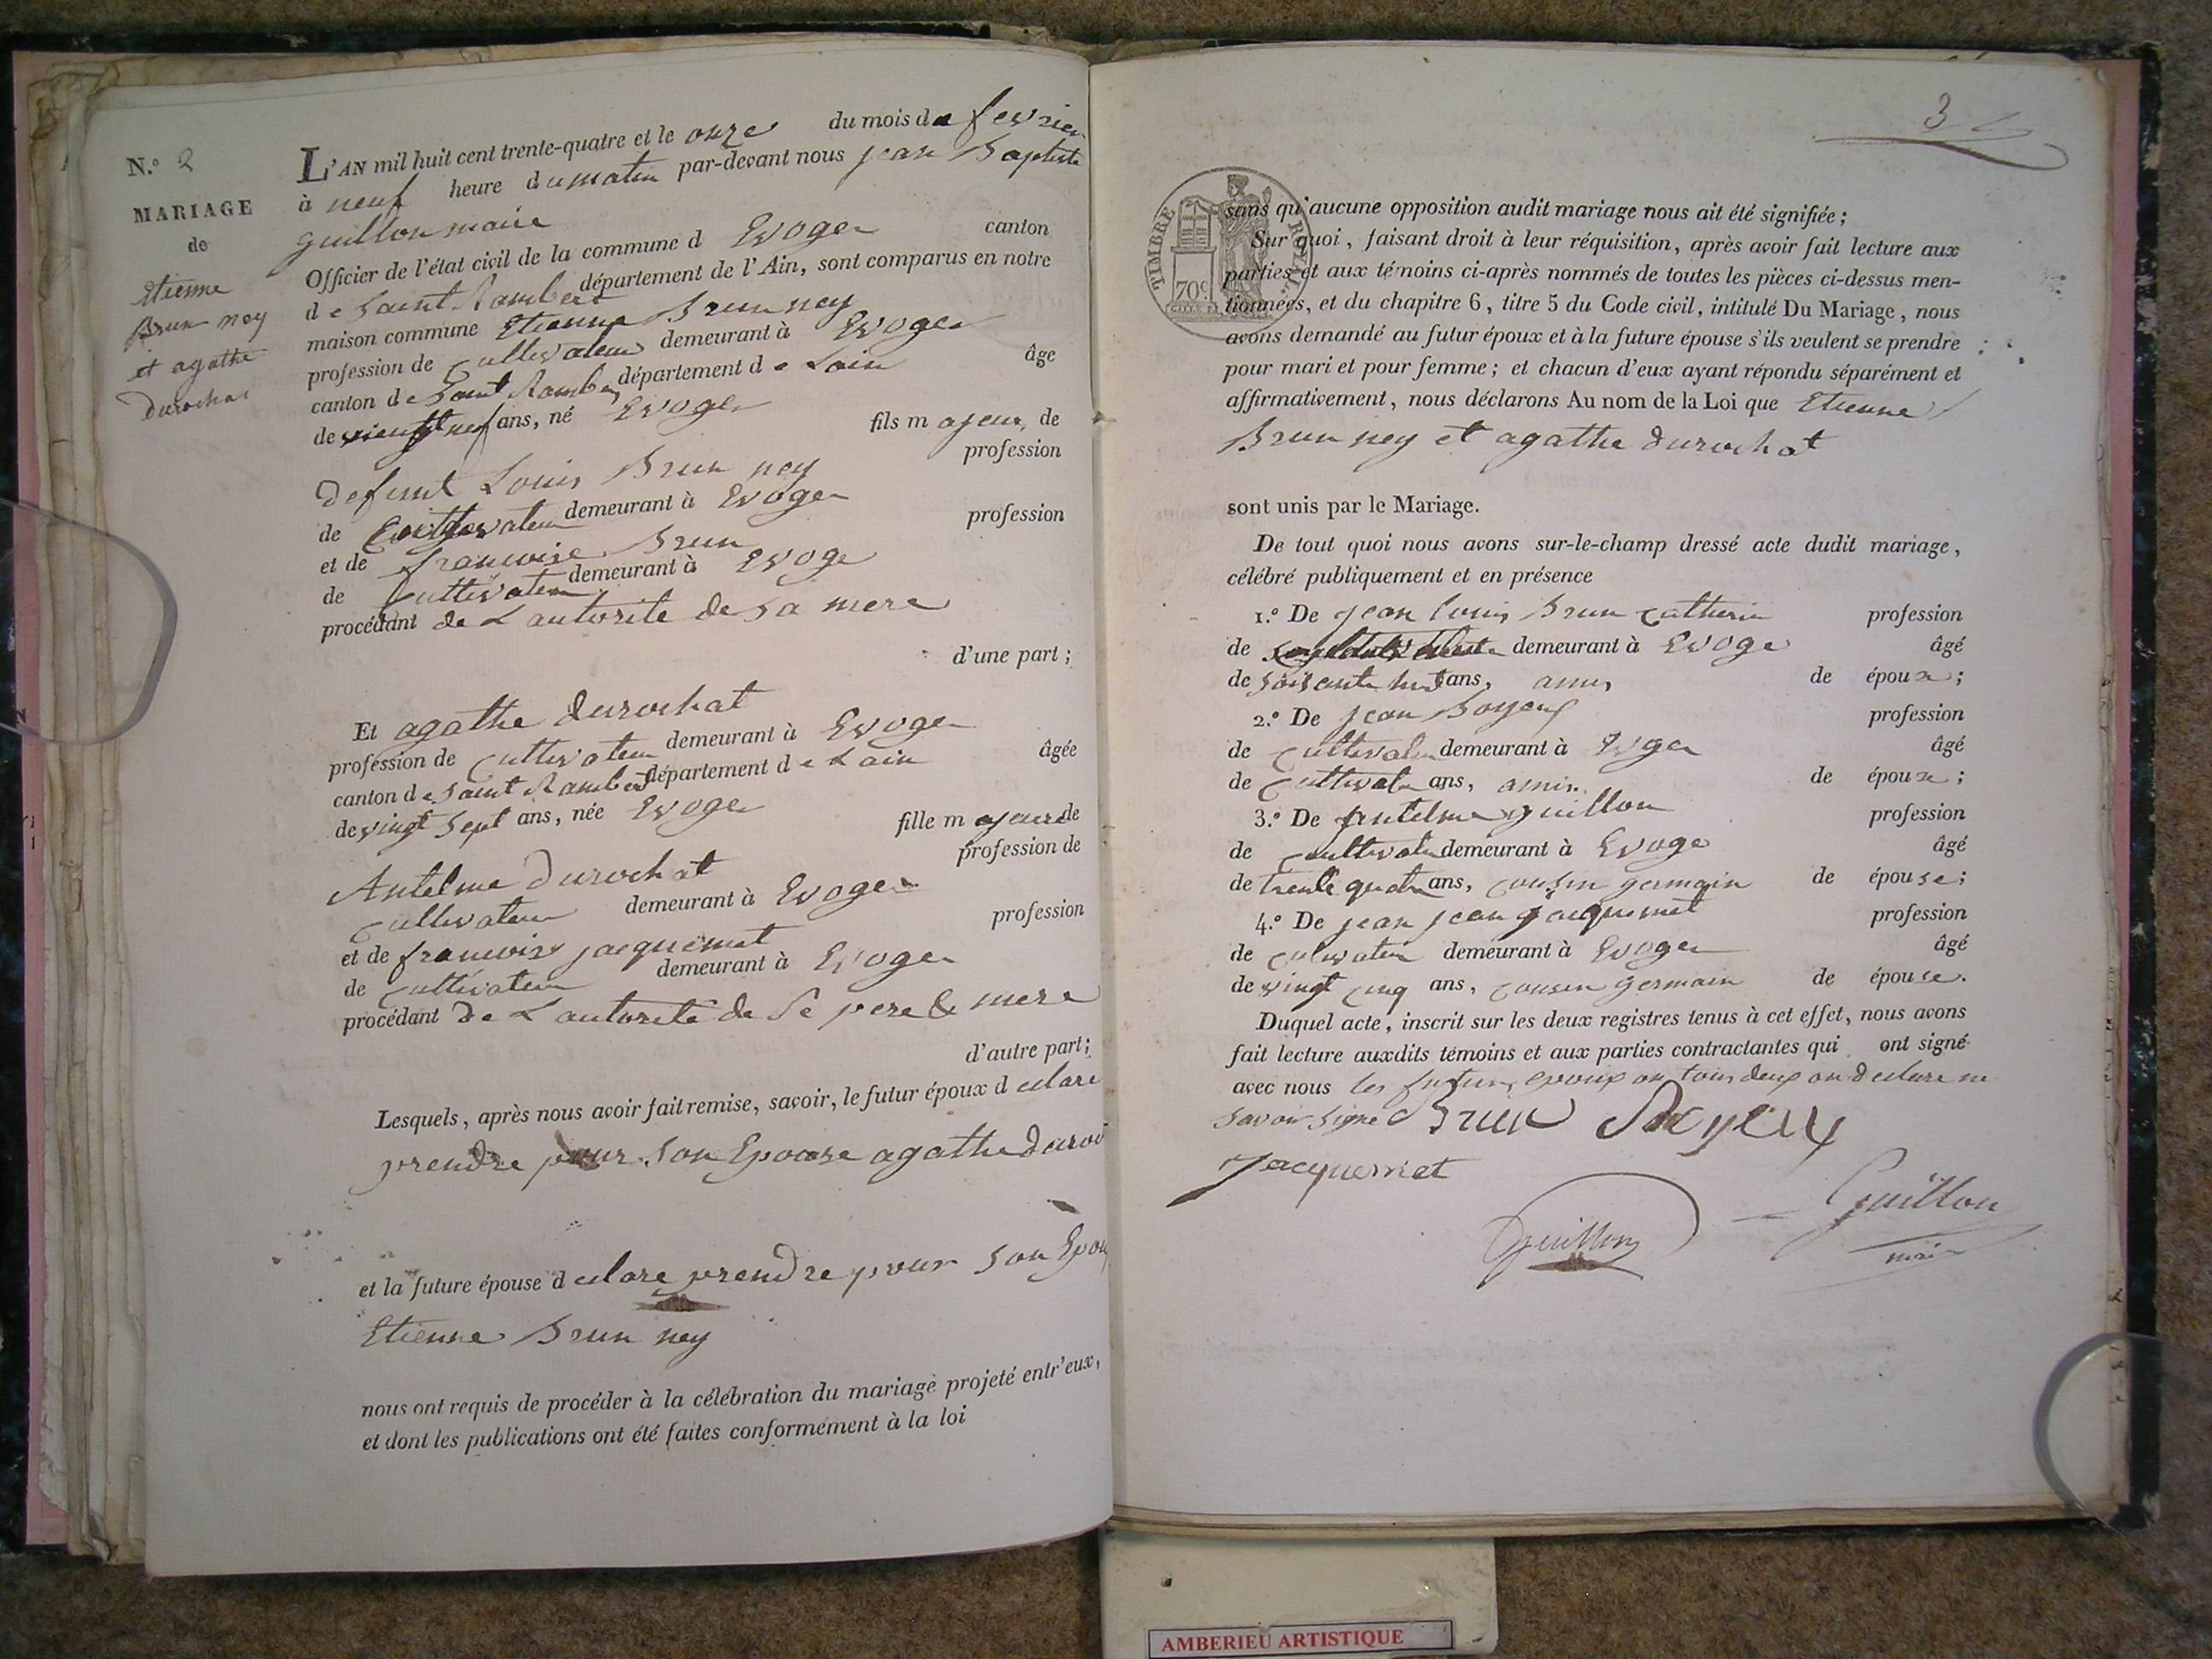 N.º 2
MARIAGE
de
etienne
Brun ney
et agathe
durochat
L'AN mil huit cent trente-quatre et le onze du mois de fevrier
à neuf heure du matin par-devant nous jean Baptiste
guillon maire
Officier de l'état civil de la commune d Evoge canton
de Saint Rambert département de l'Ain, sont comparus en notre
maison commune Etienne Brun ney
profession de cultivateur demeurant à Evoge
canton de Saint Rambert département de Lain âge
de vientneuf ans, né Evoge fils majeur, de
defunt Louis Brun ney profession
de cultivateur demeurant à Evoge
et de francoise Brun profession
de cultivateur demeurant à Evoge
procédant de Lautorite de sa mere
d'une part ;
Et agathe durochat
profession de cultivateur demeurant à Evoge
canton de Saint Rambert département de Lain âgée
de vingt sept ans, née Evoge fille majeur de
Antelme durochat profession de
cultivateur demeurant à Evoge
et de francoise jacquemet profession
de cultivateur demeurant à Evoge
procédant de Lautorite de se pere & mere
d'autre part ;
Lesquels, après nous avoir fait remise, savoir, le futur époux declare
prendre pour son Epouse agathe duro
et la future épouse declare prendre pour son Epou
Etienne Brun ney
nous ont requis de procéder à la célébration du mariage projeté entr'eux,
et dont les publications ont été faites conformément à la loi
3
TIMBRE ROYAL
70c
sans qu'aucune opposition audit mariage nous ait été signifiée ;
Sur quoi, faisant droit à leur réquisition, après avoir fait lecture aux
parties et aux témoins ci-après nommés de toutes les pièces ci-dessus men-
tionnées, et du chapitre 6, titre 5 du Code civil, intitulé Du Mariage, nous
avons demandé au futur époux et à la future épouse s'ils veulent se prendre
pour mari et pour femme ; et chacun d'eux ayant répondu séparément et
affirmativement, nous déclarons Au nom de la Loi que Etienne
Brun ney et agathe durochat
sont unis par le Mariage.
De tout quoi nous avons sur-le-champ dressé acte dudit mariage,
célébré publiquement et en présence
1.º De jean louis Brun catherin profession
de demeurant à Evoge âgé
de soisante huit ans, amis de époux ;
2.º De jean Boyeux profession
de cultivateur demeurant à Evoge âgé
de cultivate ans, amis de époux ;
3.º De Antelme guillon profession
de cultivateur demeurant à Evoge âgé
de trente quatre ans, cousin germain de épouse ;
4.º De jean jean jacquemet profession
de culivateur demeurant à Evoge âgé
de vingt cinq ans, cousin germain de épouse.
Duquel acte, inscrit sur les deux registres tenus à cet effet, nous avons
fait lecture auxdits témoins et aux parties contractantes qui ont signé
avec nous les futurs epoux on tous deux on declare ne
savoir signe Brun Boyeux
Jacquemet
Guillon Guillon
maire
AMBERIEU ARTISTIQUE